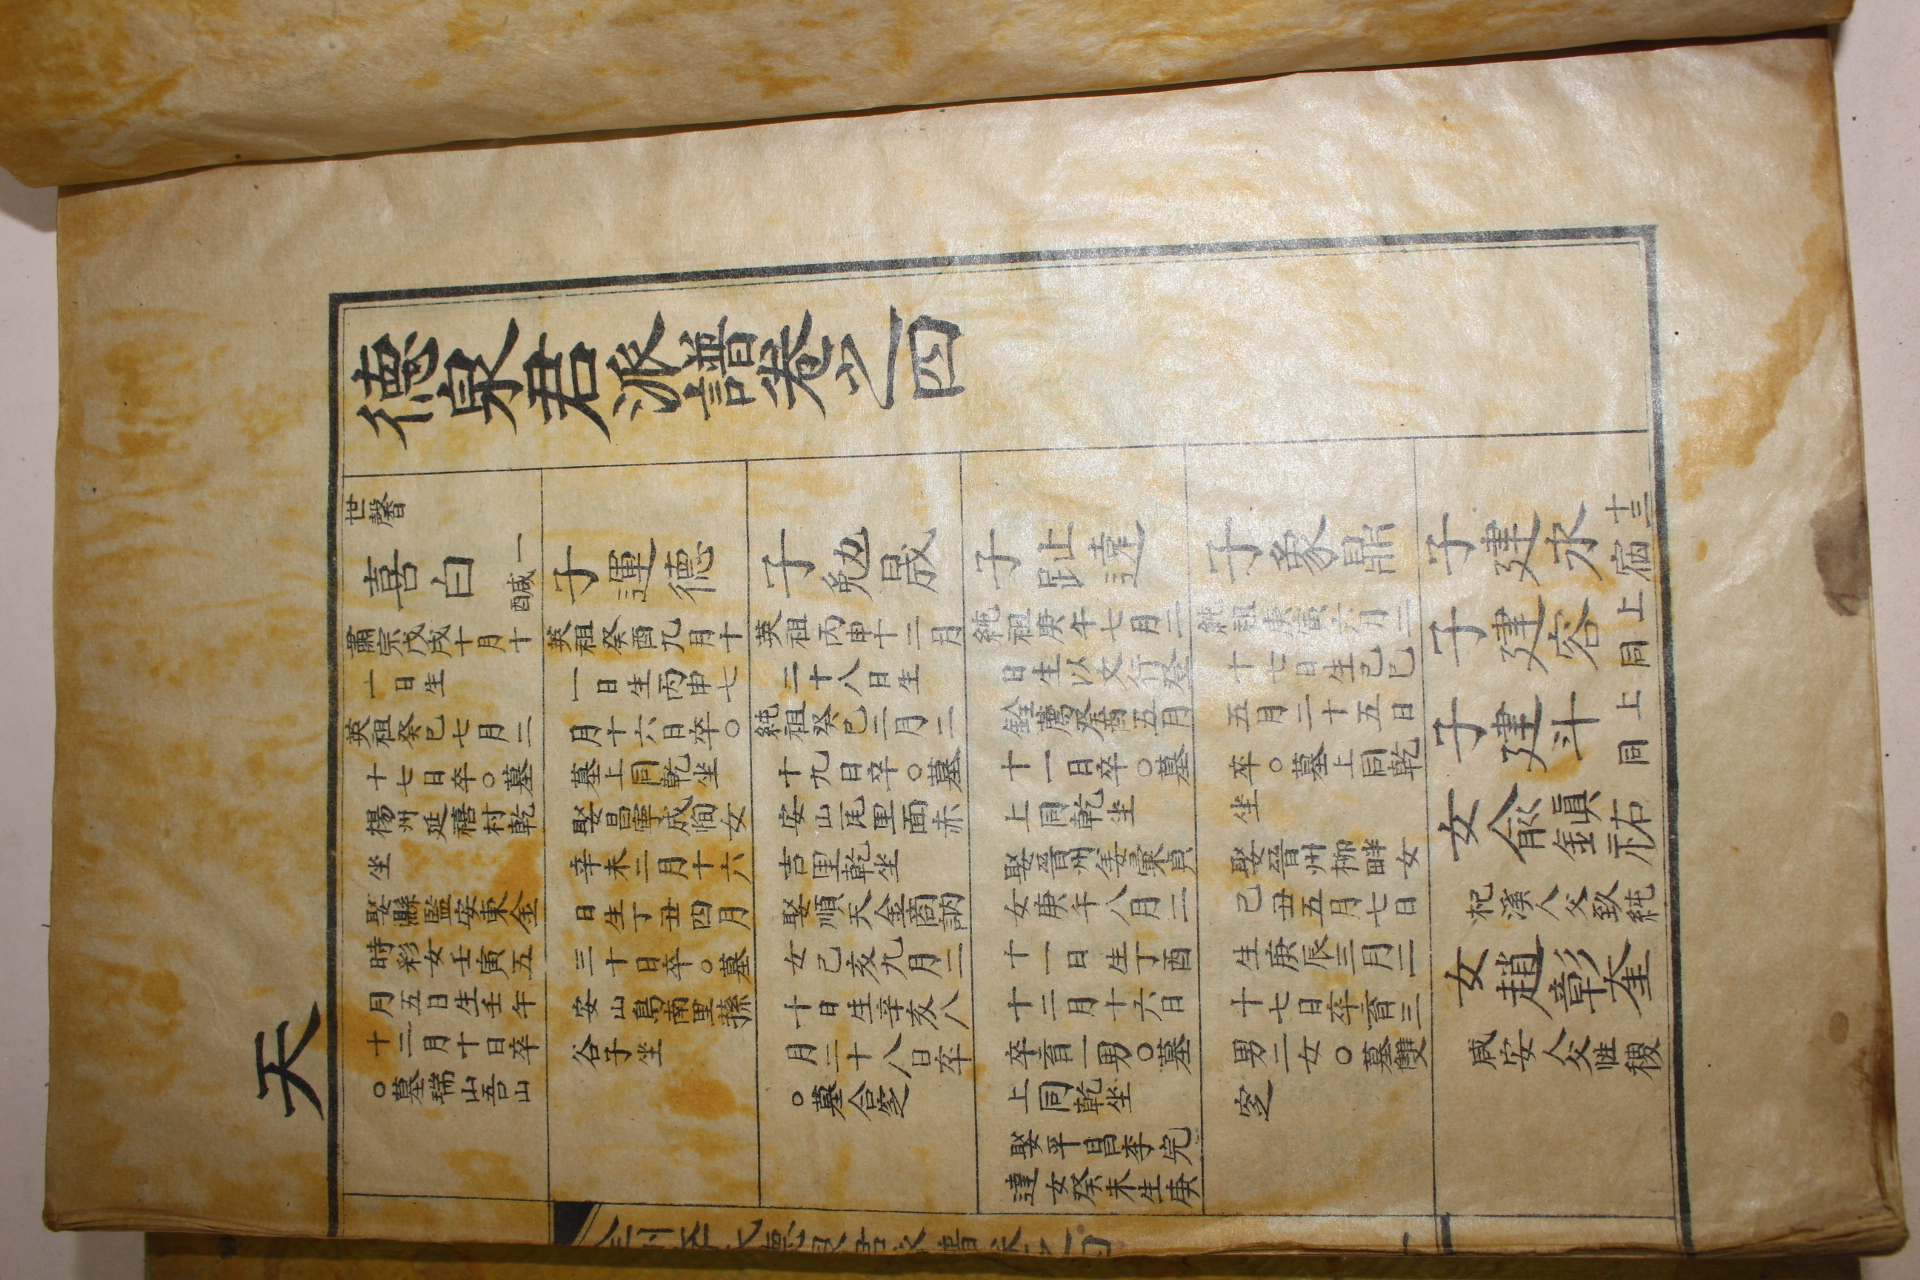 天
德泉君派譜卷之四
世磬
喜白
醎一
肅宗戊戌十月十
一日生
英祖癸巳七月三
十七日卒○墓
楊州延禧村乾
坐
娶縣監安東金
時彩女壬寅五
月五日生壬午
十二月十日卒
○墓瑞山吾山
子運德
英祖癸酉九月十
一日生丙申七
月十六日卒○
墓上同乾坐
娶昌寧成恂女
辛未二月十六
日生丁丑四月
三十日卒○墓
安山鳥南里蓀
谷子坐
子勉晟
英祖丙申十二月
二十八日生
純祖癸巳三月二
十九日卒○墓
安山瓦里面赤
吉里乾坐
娶順天金商訥
女己亥九月二
十日生辛亥八
月二十八日卒
○墓合窆
子趾遠
純祖庚午七月三
日生以文行登
銓薦癸酉五月
十一日卒○墓
上同乾坐
娶晉州姜彙貞
女庚午八月二
十一日生丁酉
十二月十六日
卒育一男○墓
上同乾坐
娶平昌李完
達女癸未生庚
子象鼎
純祖庚寅六月二
十七日生己巳
五月二十五日
卒○墓上同乾
坐
娶晉州柳畔女
己丑五月七日
生庚辰三月二
十七日卒育三
男二女○墓雙
窆
子建永
宿十三
子建容
同上
子建斗
同上
女兪鎭祐
杞溪人父致純
女趙彰奎
咸安人父性稷